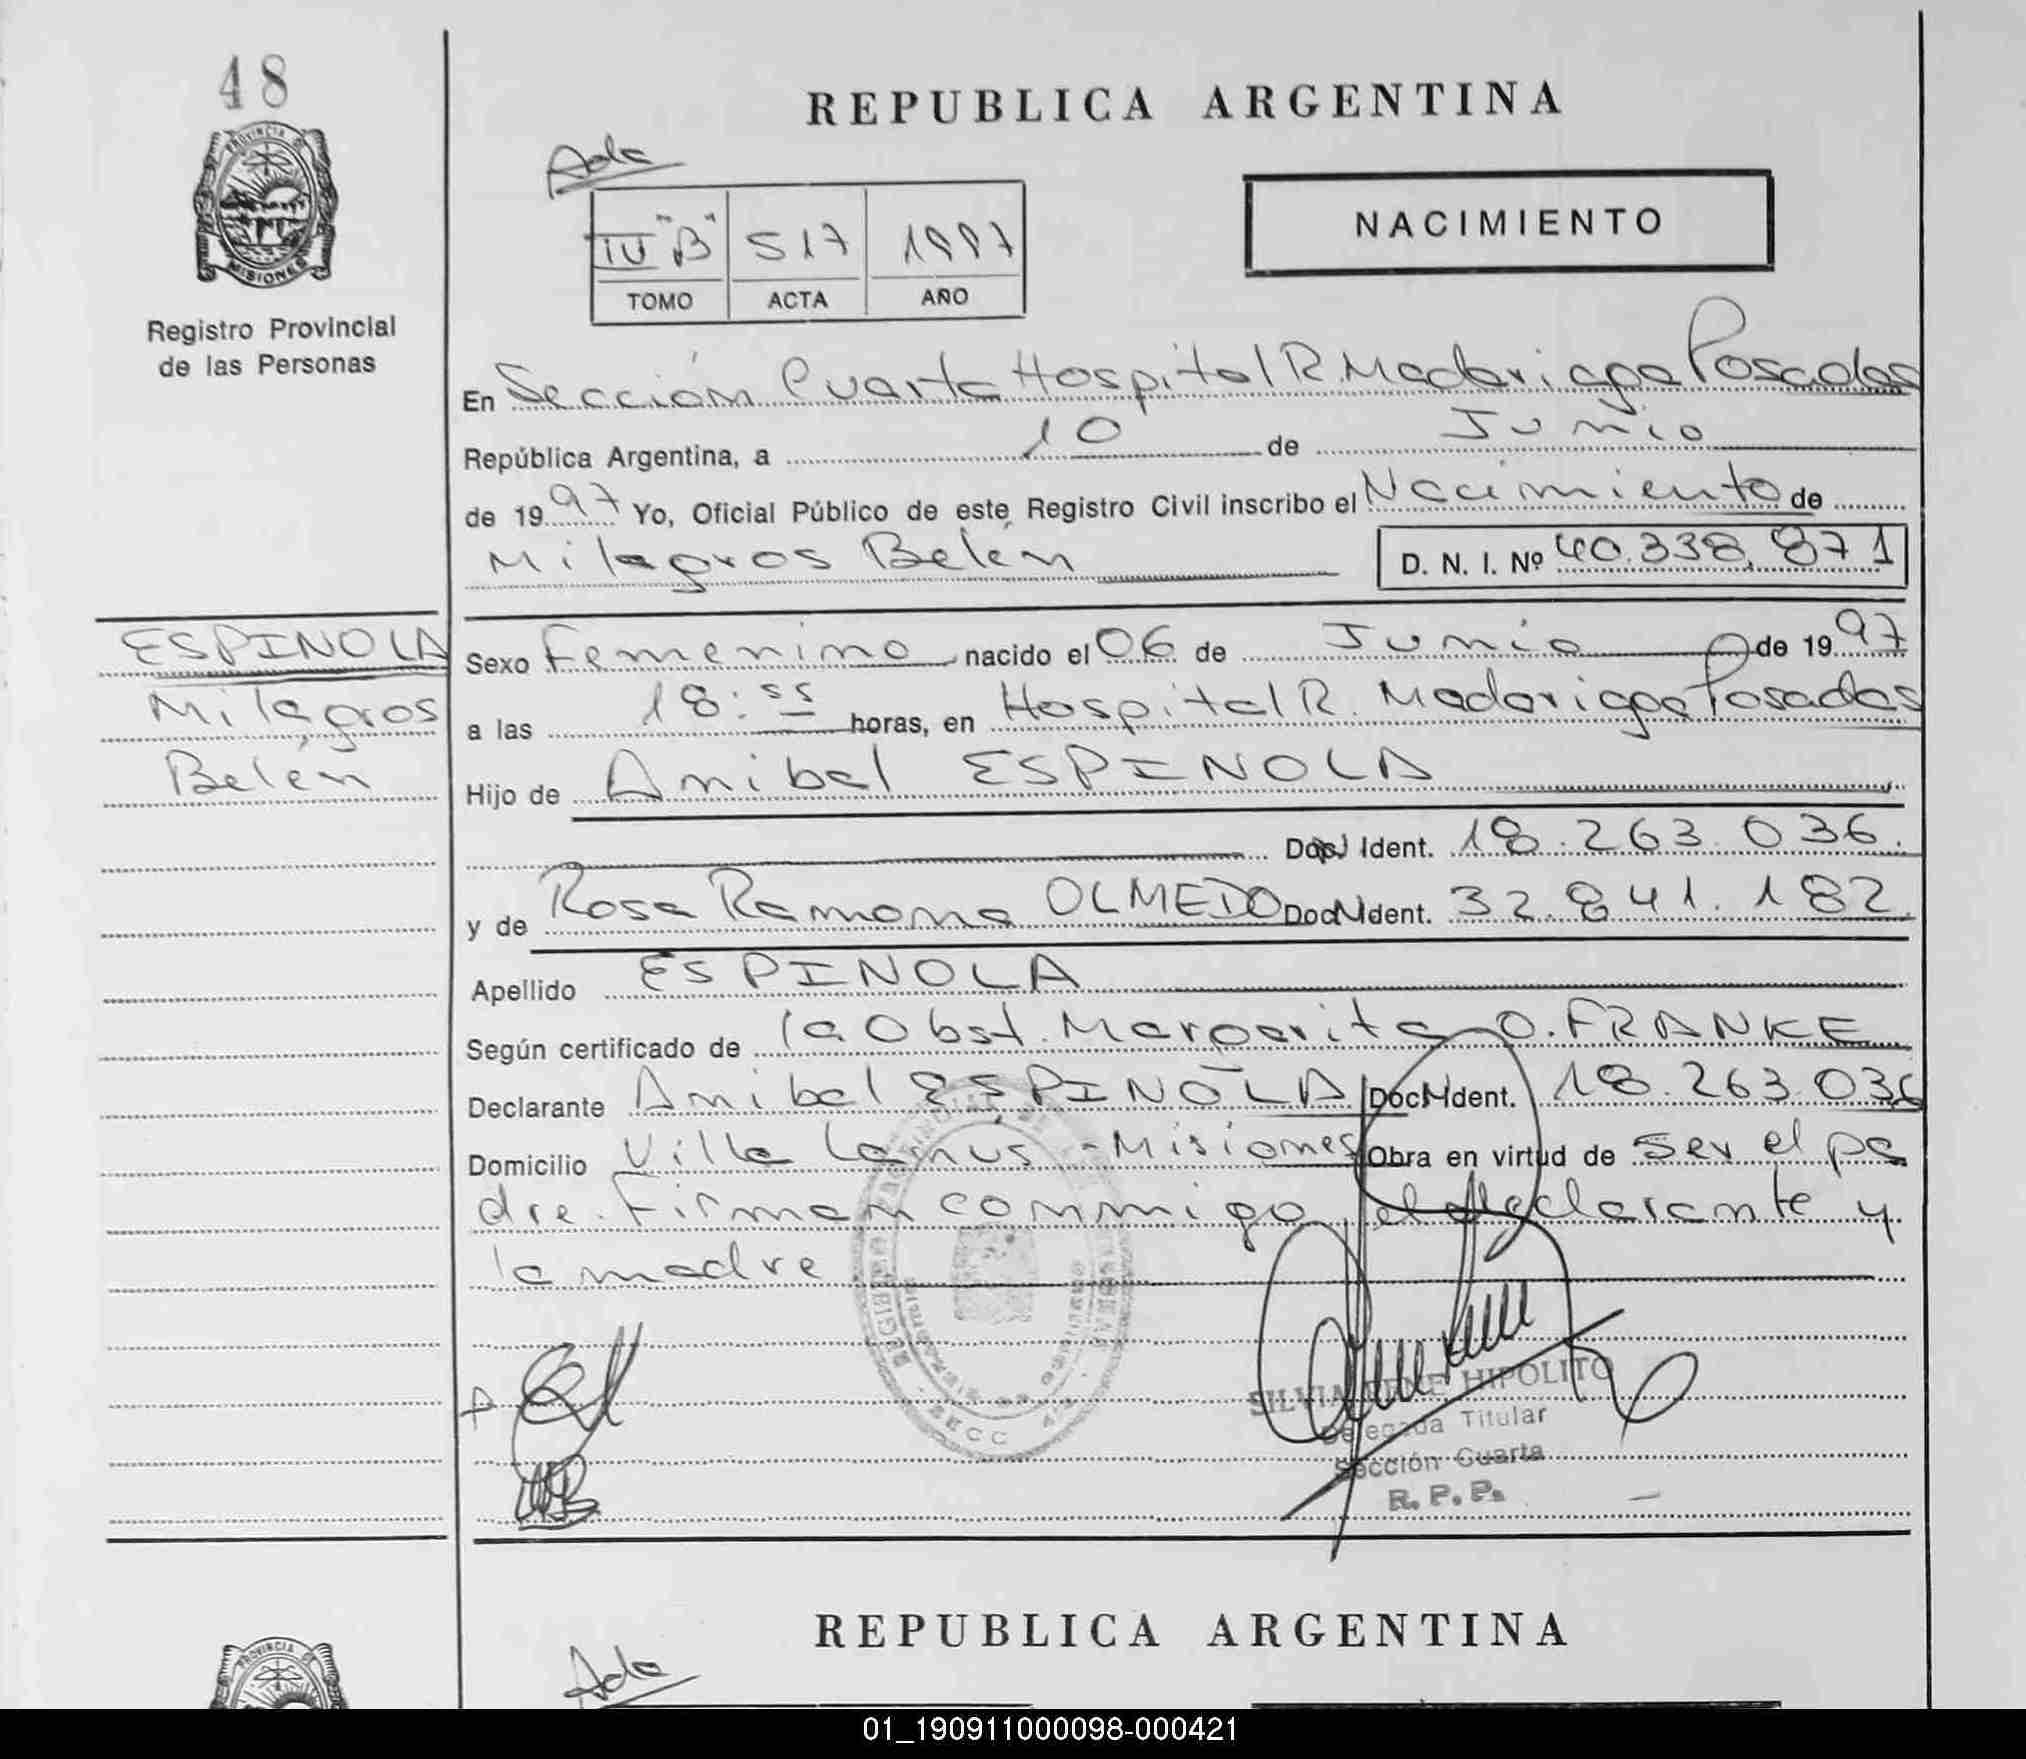 48
PROVINCIA DE
MISIONES
Registro Provincial
de las Personas
REPUBLICA ARGENTINA
Ada
IV "B" 517 1997
TOMO ACTA AÑO
NACIMIENTO
En Sección Cuarta Hospital R. Madariaga Posadas
República Argentina, a 10 de Junio
de 1997 Yo, Oficial Público de este Registro Civil inscribo el Nacimiento de
Milagros Belén D. N. I. Nº 40.338.871
ESPINOLA
Milagros
Belén
Sexo Femenino nacido el 06 de Junio de 1997
a las 18:55 horas, en Hospital R. Madariaga Posadas
Hijo de Anibal ESPINOLA
Doc. Ident. 18.263.036.
y de Rosa Ramona OLMEDO Doc. Ident. 32.841.182.
Apellido ESPINOLA
Según certificado de la Obst. Margarita O. FRANKE
Declarante Anibal ESPINOLA Doc. Ident. 18.263.036
Domicilio Villa Lanús - Misiones Obra en virtud de ser el pa
dre. Firman conmigo el declarante y
la madre
SECC 4
SILVIA IRENE HIPOLITO
Delegada Titular
Sección Cuarta
R. P. P.
REPUBLICA ARGENTINA
Ada
PROVINCIA
01_190911000098-000421